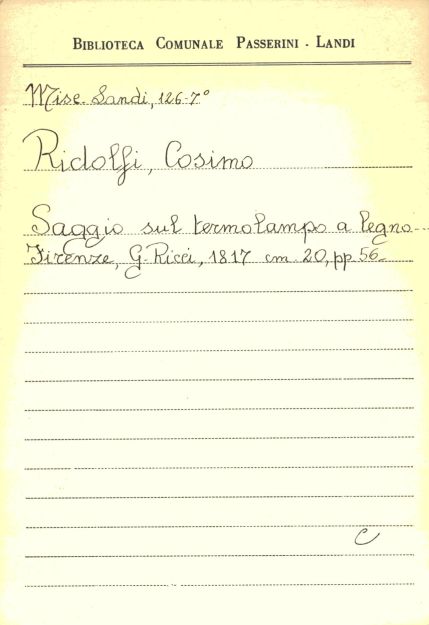 BIBLIOTECA COMUNALE PASSERINI - LANDI
Misc. Landi, 126-7°
Ridolfi, Cosimo
Saggio sul termolampo a legno
Firenze, G. Ricci, 1817 cm. 20, pp. 56
C